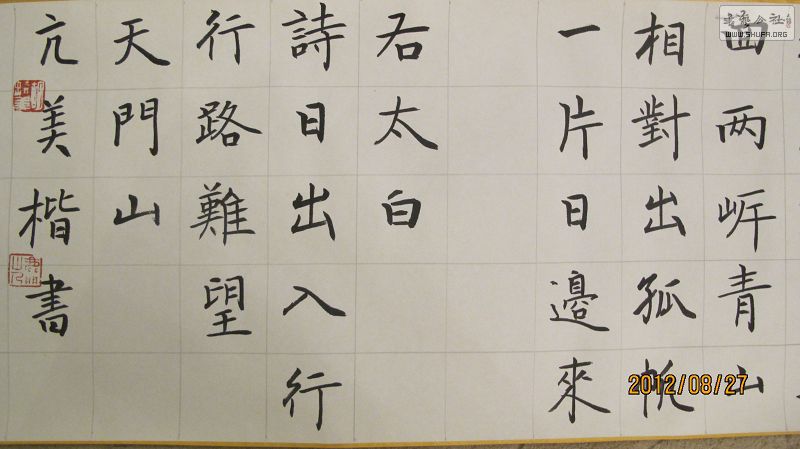 回两岸青山
相對出孤帆
一片日邊來
右太白
詩日出入行
行路難望
天門山
亢美楷書
书艺公社
WWW.SHUFA.ORG
2012/08/27